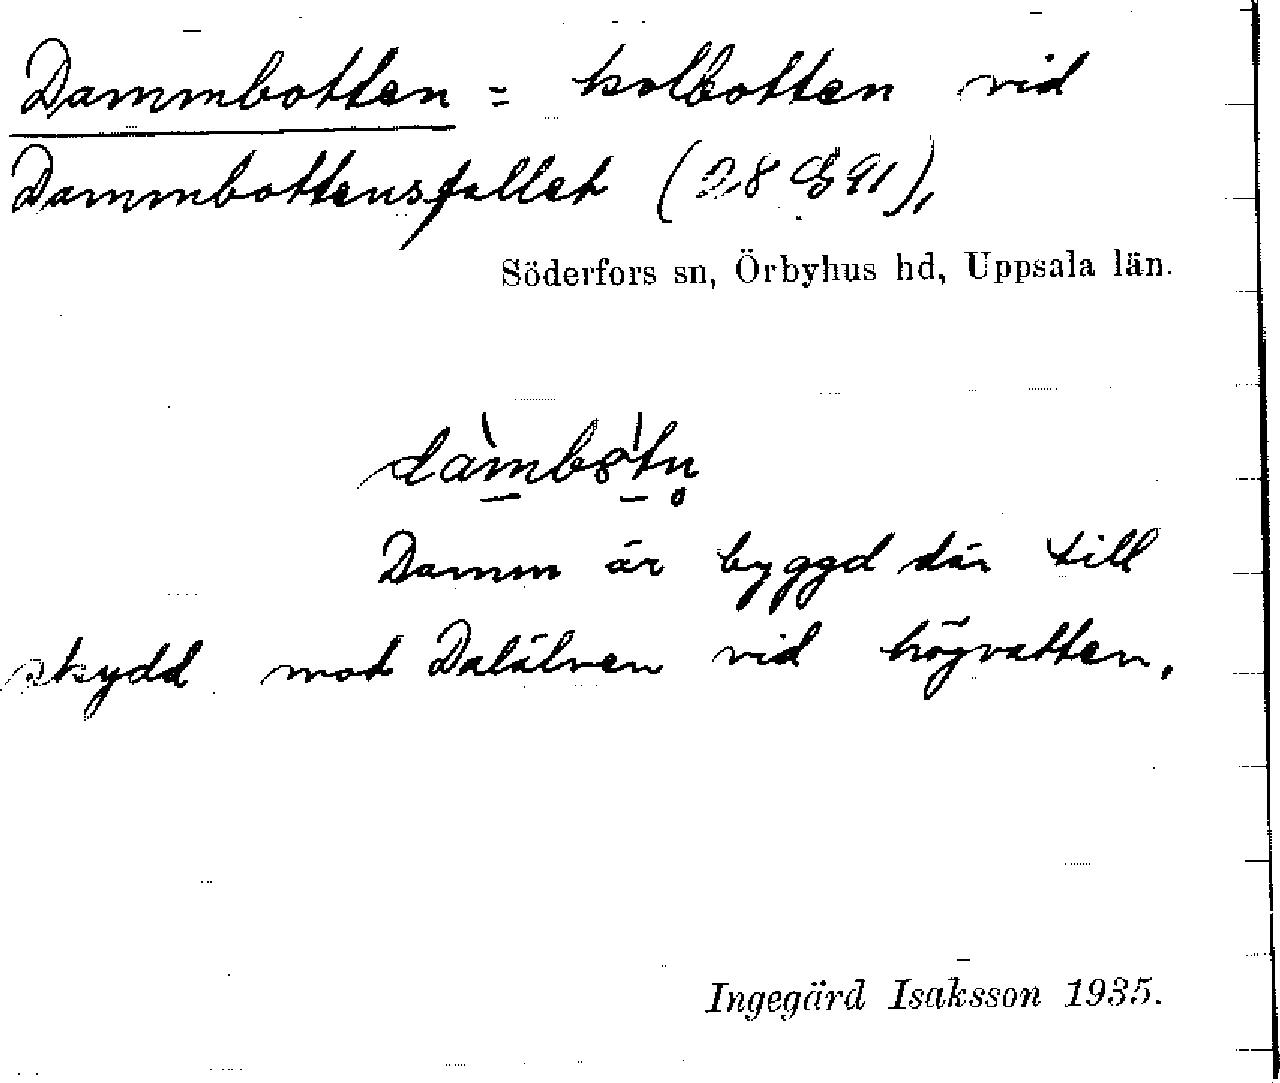 Dammbotten = kolbotten vid
Dammbottensfallet (28 G 91),
Söderfors sn, Örbyhus hd, Uppsala län.
Damm är byggd där till
skydd mot Dalälven vid högvatten.
Ingegärd Isaksson 1935.